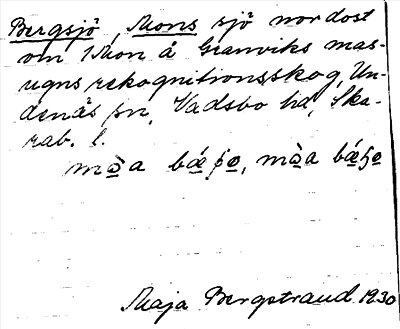 Bergsjö, Mons sjö nordost
om 1 Mon å Granviks mas-
ugns rekognitionsskog, Un-
denäs sn, Vadsbo hd, Ska-
rab. l.
Maja Bergstrand 1930